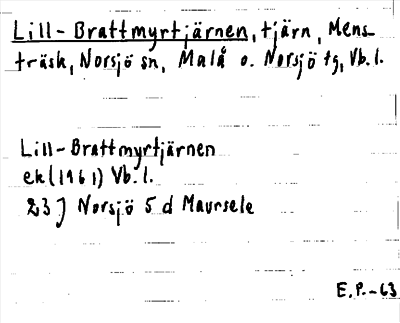 Lill-Brattmyrtjärnen, tjärn, Mens-
träsk, Norsjö sn, Malå o. Norsjö tg, Vb.l.
Lill-Brattmyrtjärnen
ek(1961) Vb.l.
23J Norsjö 5 d Maursele
E.P.-63